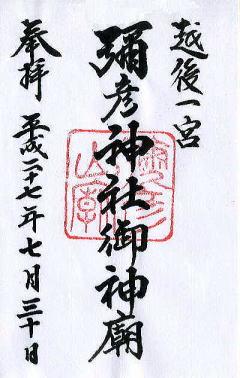 越後一宮
彌彦神社御神廟
奉拝 平成二十七年七月三十日